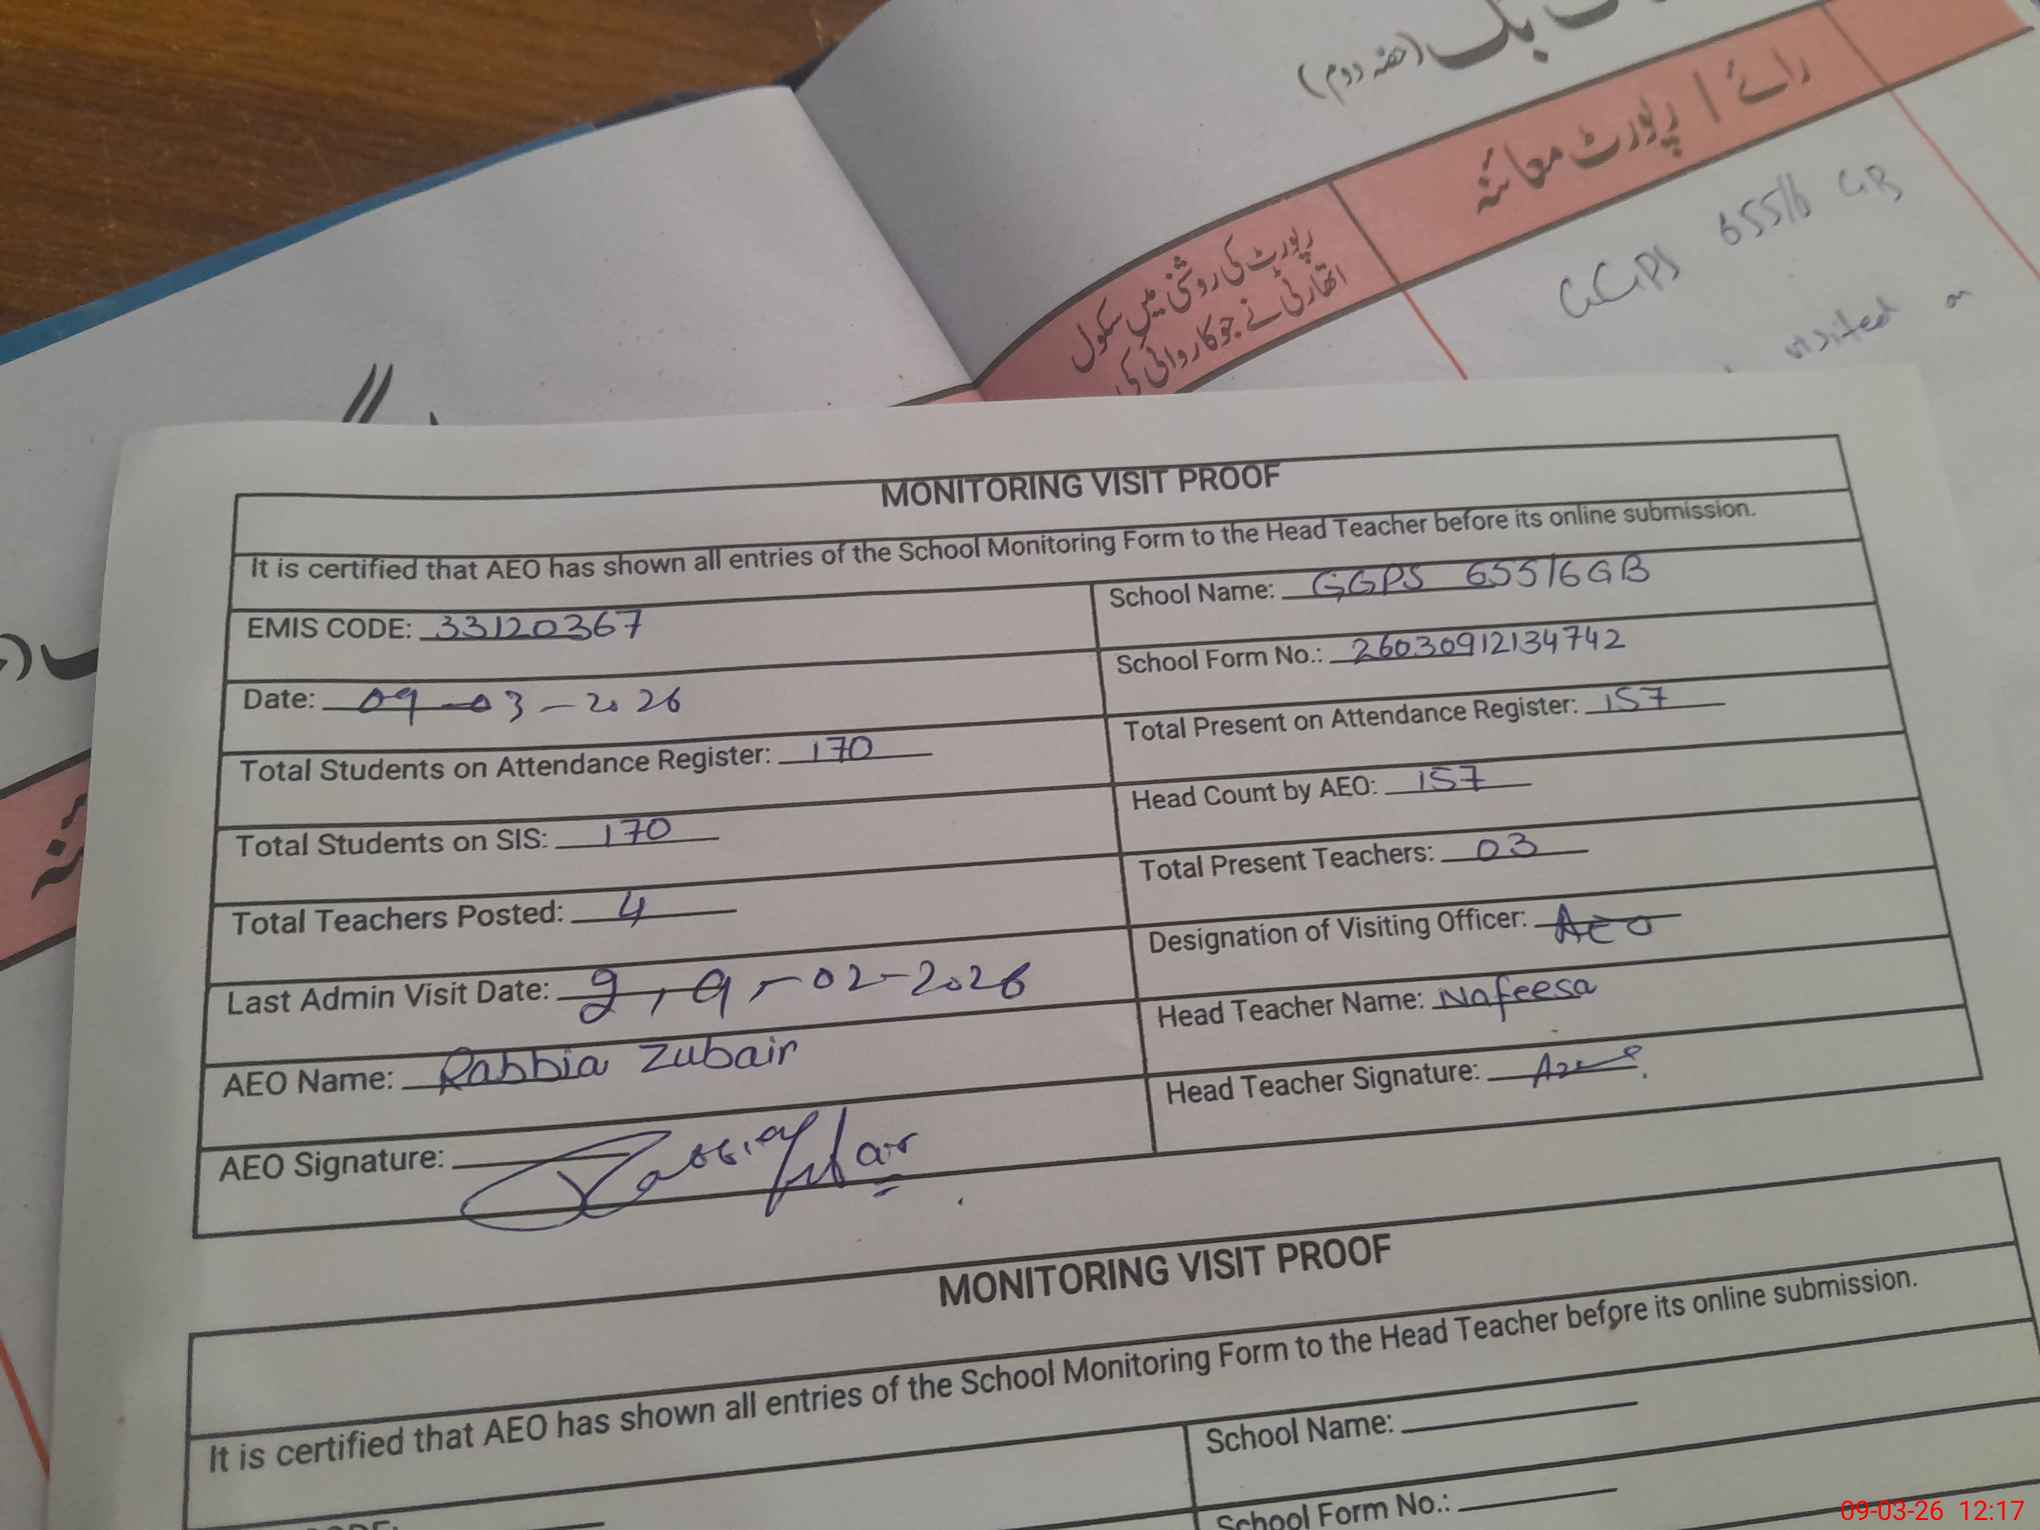 (حصہ دوم)
رائے / رپورٹ معائنہ
رپورٹ کی روشنی میں سکول
اتھارٹی نے جو کاروائی کی
GGPS 655/6 GB
visited on
MONITORING VISIT PROOF
It is certified that AEO has shown all entries of the School Monitoring Form to the Head Teacher before its online submission.
EMIS CODE: 33120367
School Name: GGPS 655/6GB
Date: 09-03-2026
School Form No.: 26030912134742
Total Students on Attendance Register: 170
Total Present on Attendance Register: 157
Total Students on SIS: 170
Head Count by AEO: 157
Total Teachers Posted: 4
Total Present Teachers: 03
Last Admin Visit Date: -02-2026
Designation of Visiting Officer: AEO
AEO Name: Rabbia Zubair
Head Teacher Name: Nafeesa
AEO Signature:
Head Teacher Signature:
MONITORING VISIT PROOF
It is certified that AEO has shown all entries of the School Monitoring Form to the Head Teacher before its online submission.
School Name:
School Form No.:
09-03-26 12:17